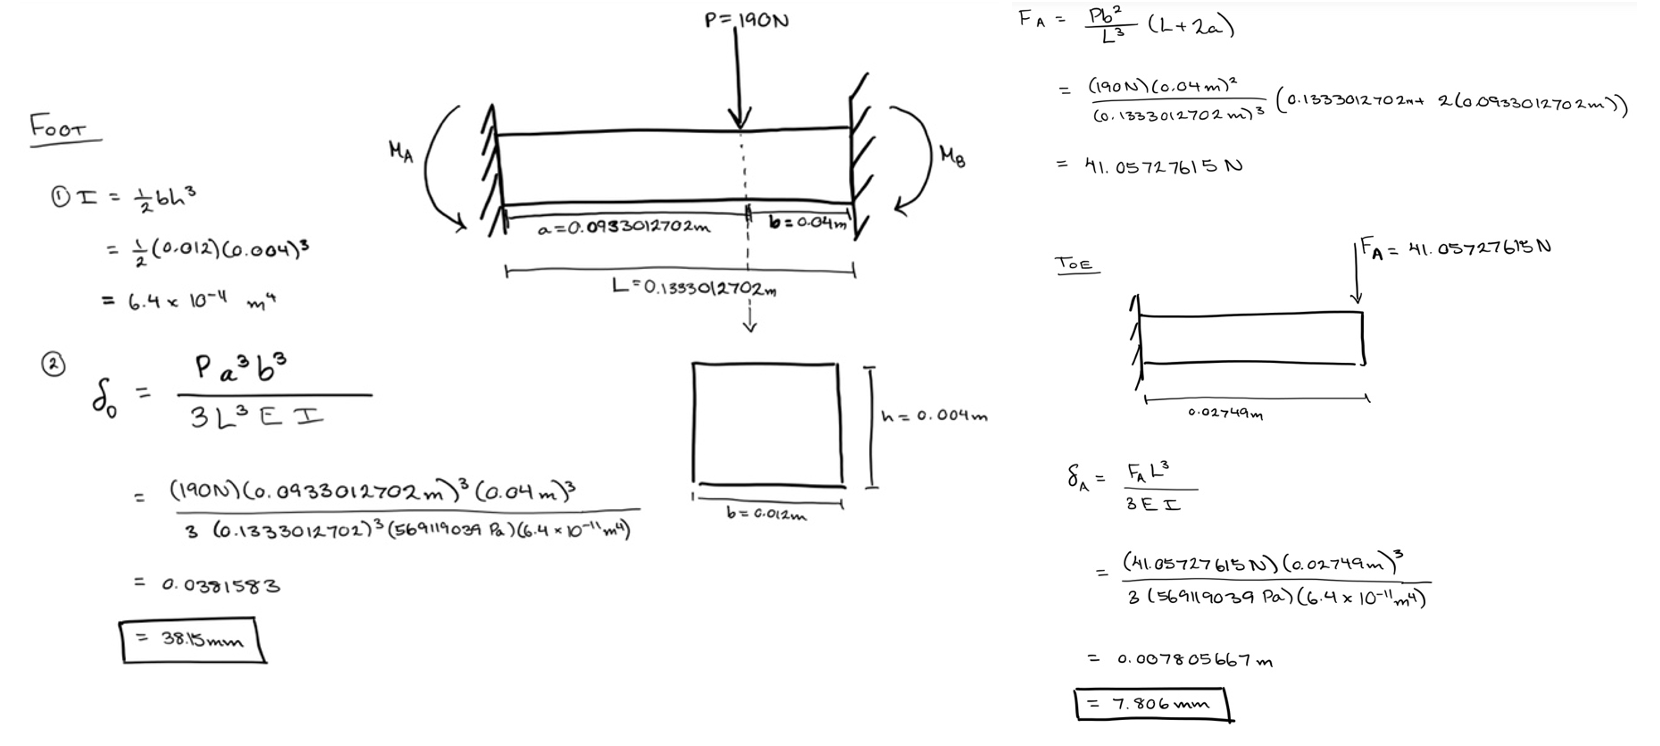 FOOT
① I = 1/2 bh³
= 1/2 (0.012)(0.004)³
= 6.4 × 10⁻¹¹ m⁴
② δ₀ = Pa³b³ / 3L³EI
= (190N)(0.0933012702m)³(0.04m)³ / 3 (0.1333012702)³(569119039 Pa)(6.4×10⁻¹¹m⁴)
= 0.0381583
= 38.15mm
P=190N
M_A
M_B
a=0.0933012702m
b=0.04m
L=0.1333012702m
h=0.004m
b=0.012m
F_A = Pb²/L³ (L+2a)
= (190N)(0.04m)² / (0.1333012702m)³ (0.1333012702m + 2(0.0933012702m))
= 41.05727615N
TOE
F_A = 41.05727615N
0.02749m
δ_A = F_A L³ / 3EI
= (41.05727615N)(0.02749m)³ / 3(569119039 Pa)(6.4×10⁻¹¹m⁴)
= 0.007805667m
= 7.806mm